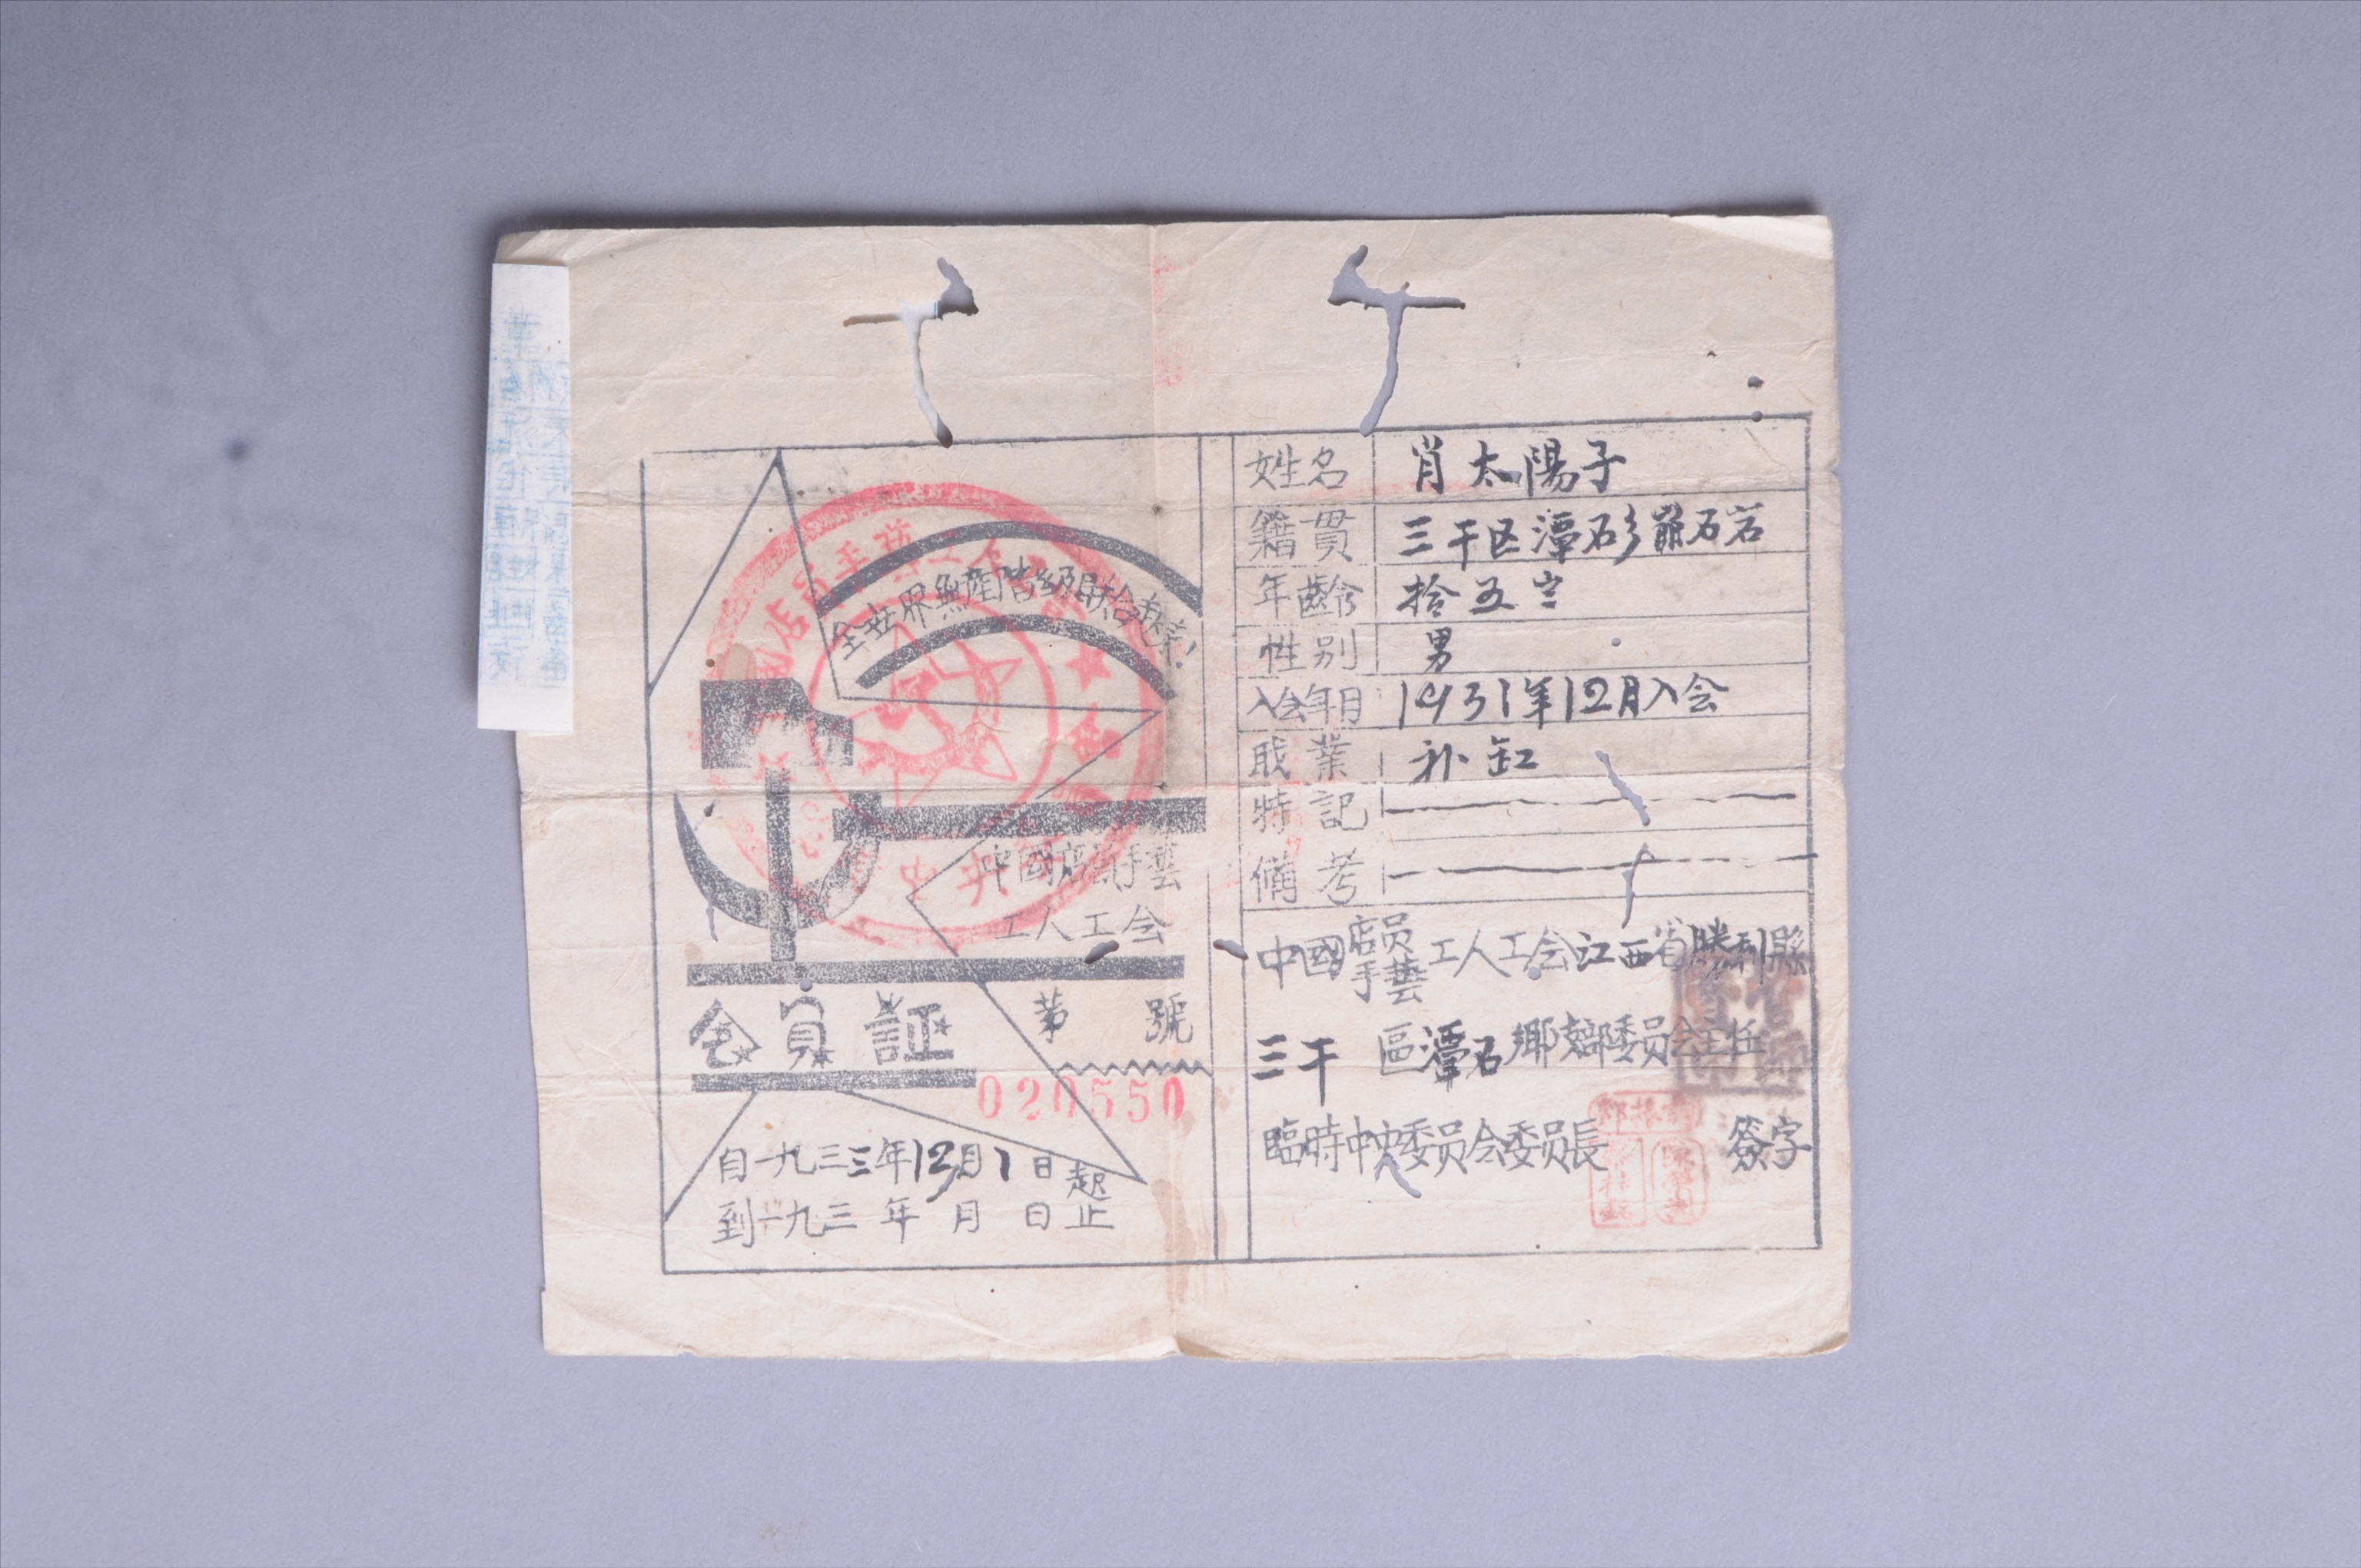 全世界無產階級联合起來!
中國店員手藝
工人工会
会員証
第 號
020550
自一九三三年12月1日起
到一九三 年 月 日止
姓名 肖太陽子
籍貫 三干区潭石
年齡 拾五
性别 男
入会年月 1931年12月入会
职業 补缸
特記
備考
中國店员手藝工人工会江西省勝利縣
三干 區潭石鄉支部委员会主任
臨時中央委员会委员長 簽字